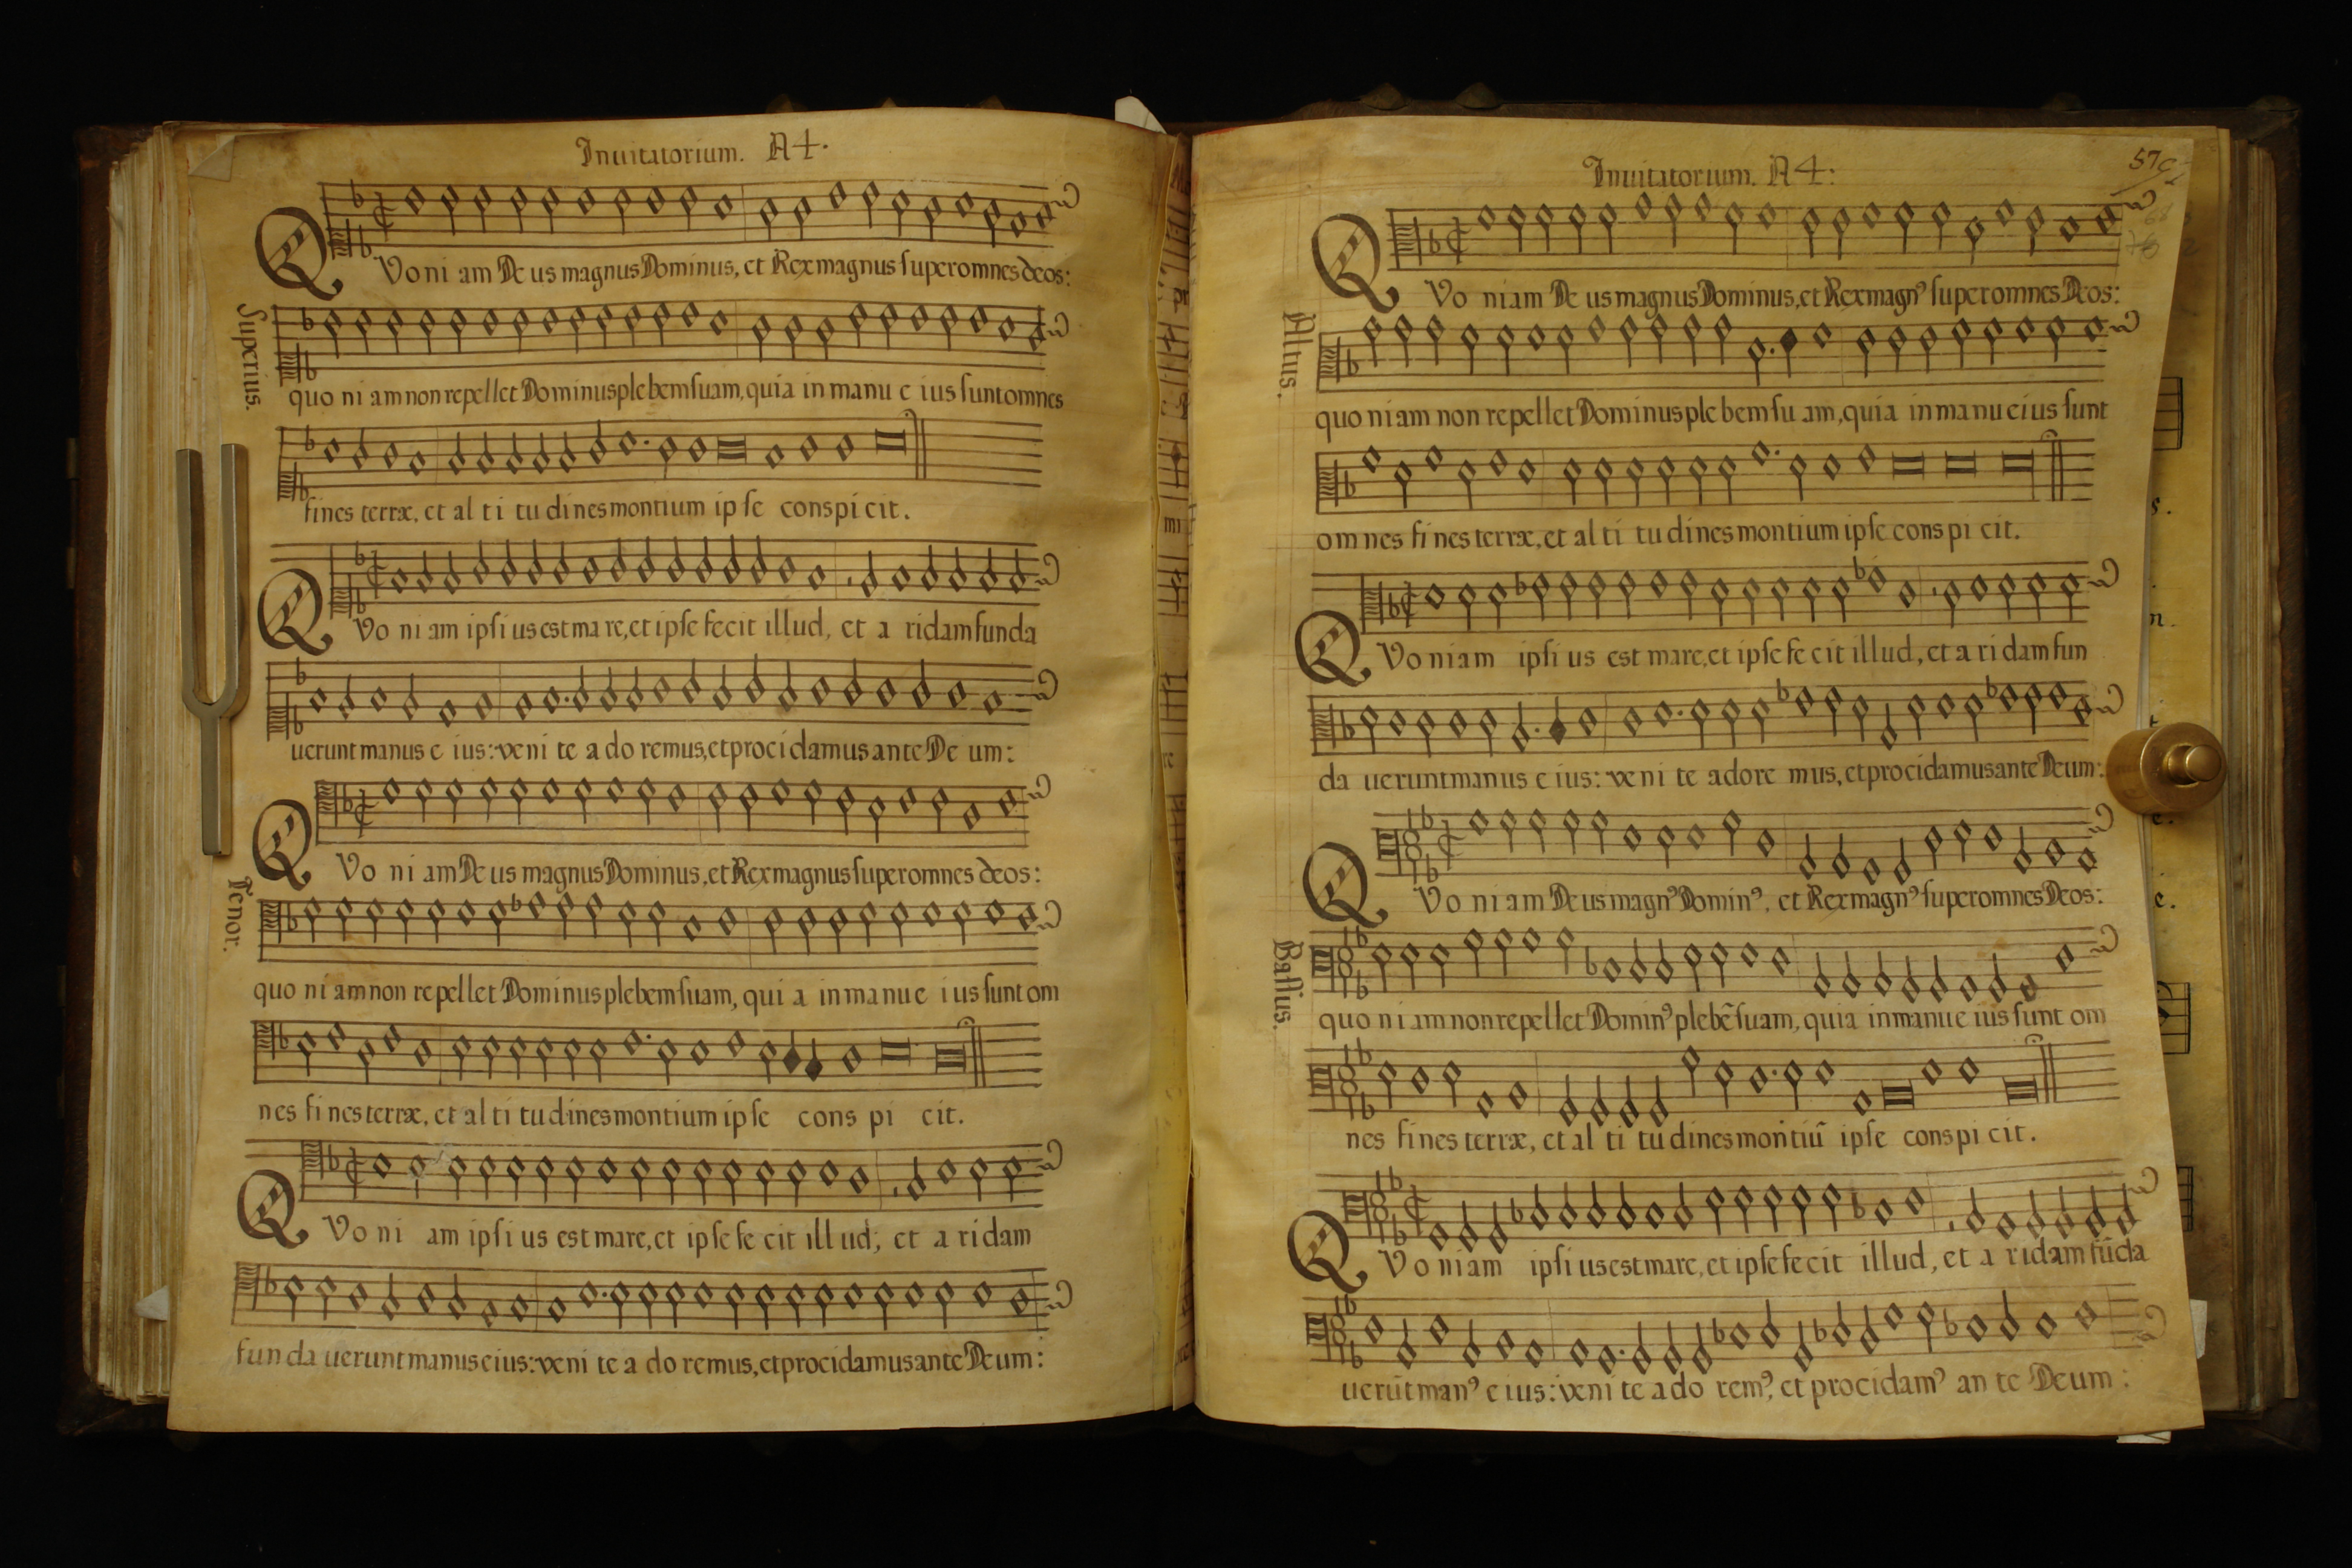 Inuitatorium. A4.
QVo ni am De us magnus Dominus, et Rex magnus super omnes deos:
Superius.
quo ni am non repellet Dominus plebem suam, quia in manu e ius sunt omnes
fines terræ, et al ti tu dines montium ip se conspi cit.
QVo ni am ipsi us est ma re, et ipse fecit illud, et a ridam funda
uerunt manus e ius: veni te a do remus, et procidamus ante De um:
QVo ni am De us magnus Dominus, et Rex magnus super omnes deos:
Tenor.
quo ni am non repellet Dominus plebem suam, qui a in manu e ius sunt om
nes fi nes terræ, et al ti tu dines montium ip se cons pi cit.
QVo ni am ipsi us est mare, et ipse fe cit ill ud, et a ri dam
fun da uerunt manus eius: veni te a do remus, et procidamus ante Deum:
Inuitatorium. A4:
57
QVo niam De us magnus Dominus, et Rex magnꝰ super omnes Deos:
Altus.
quo niam non repellet Dominus ple bem su am, quia in manu eius sunt
om nes fi nes terræ, et al ti tu dines montium ipse cons pi cit.
QVo niam ipsi us est mare, et ipse fe cit illud, et a ri dam fun
da uerunt manus e ius: ve ni te adore mus, et procidamus ante Deum:
QVo ni am De us magnꝰ Dominꝰ, et Rex magnꝰ super omnes Deos:
Bassus.
quo ni am non repellet Dominꝰ plebē suam, quia in manu e ius sunt om
nes fines terræ, et al ti tu dines montiū ipse conspi cit.
QVo niam ipsi us est mare, et ipse fecit illud, et a ridam fūda
uerūt manꝰ e ius: veni te a do remꝰ, et procidamꝰ an te Deum: